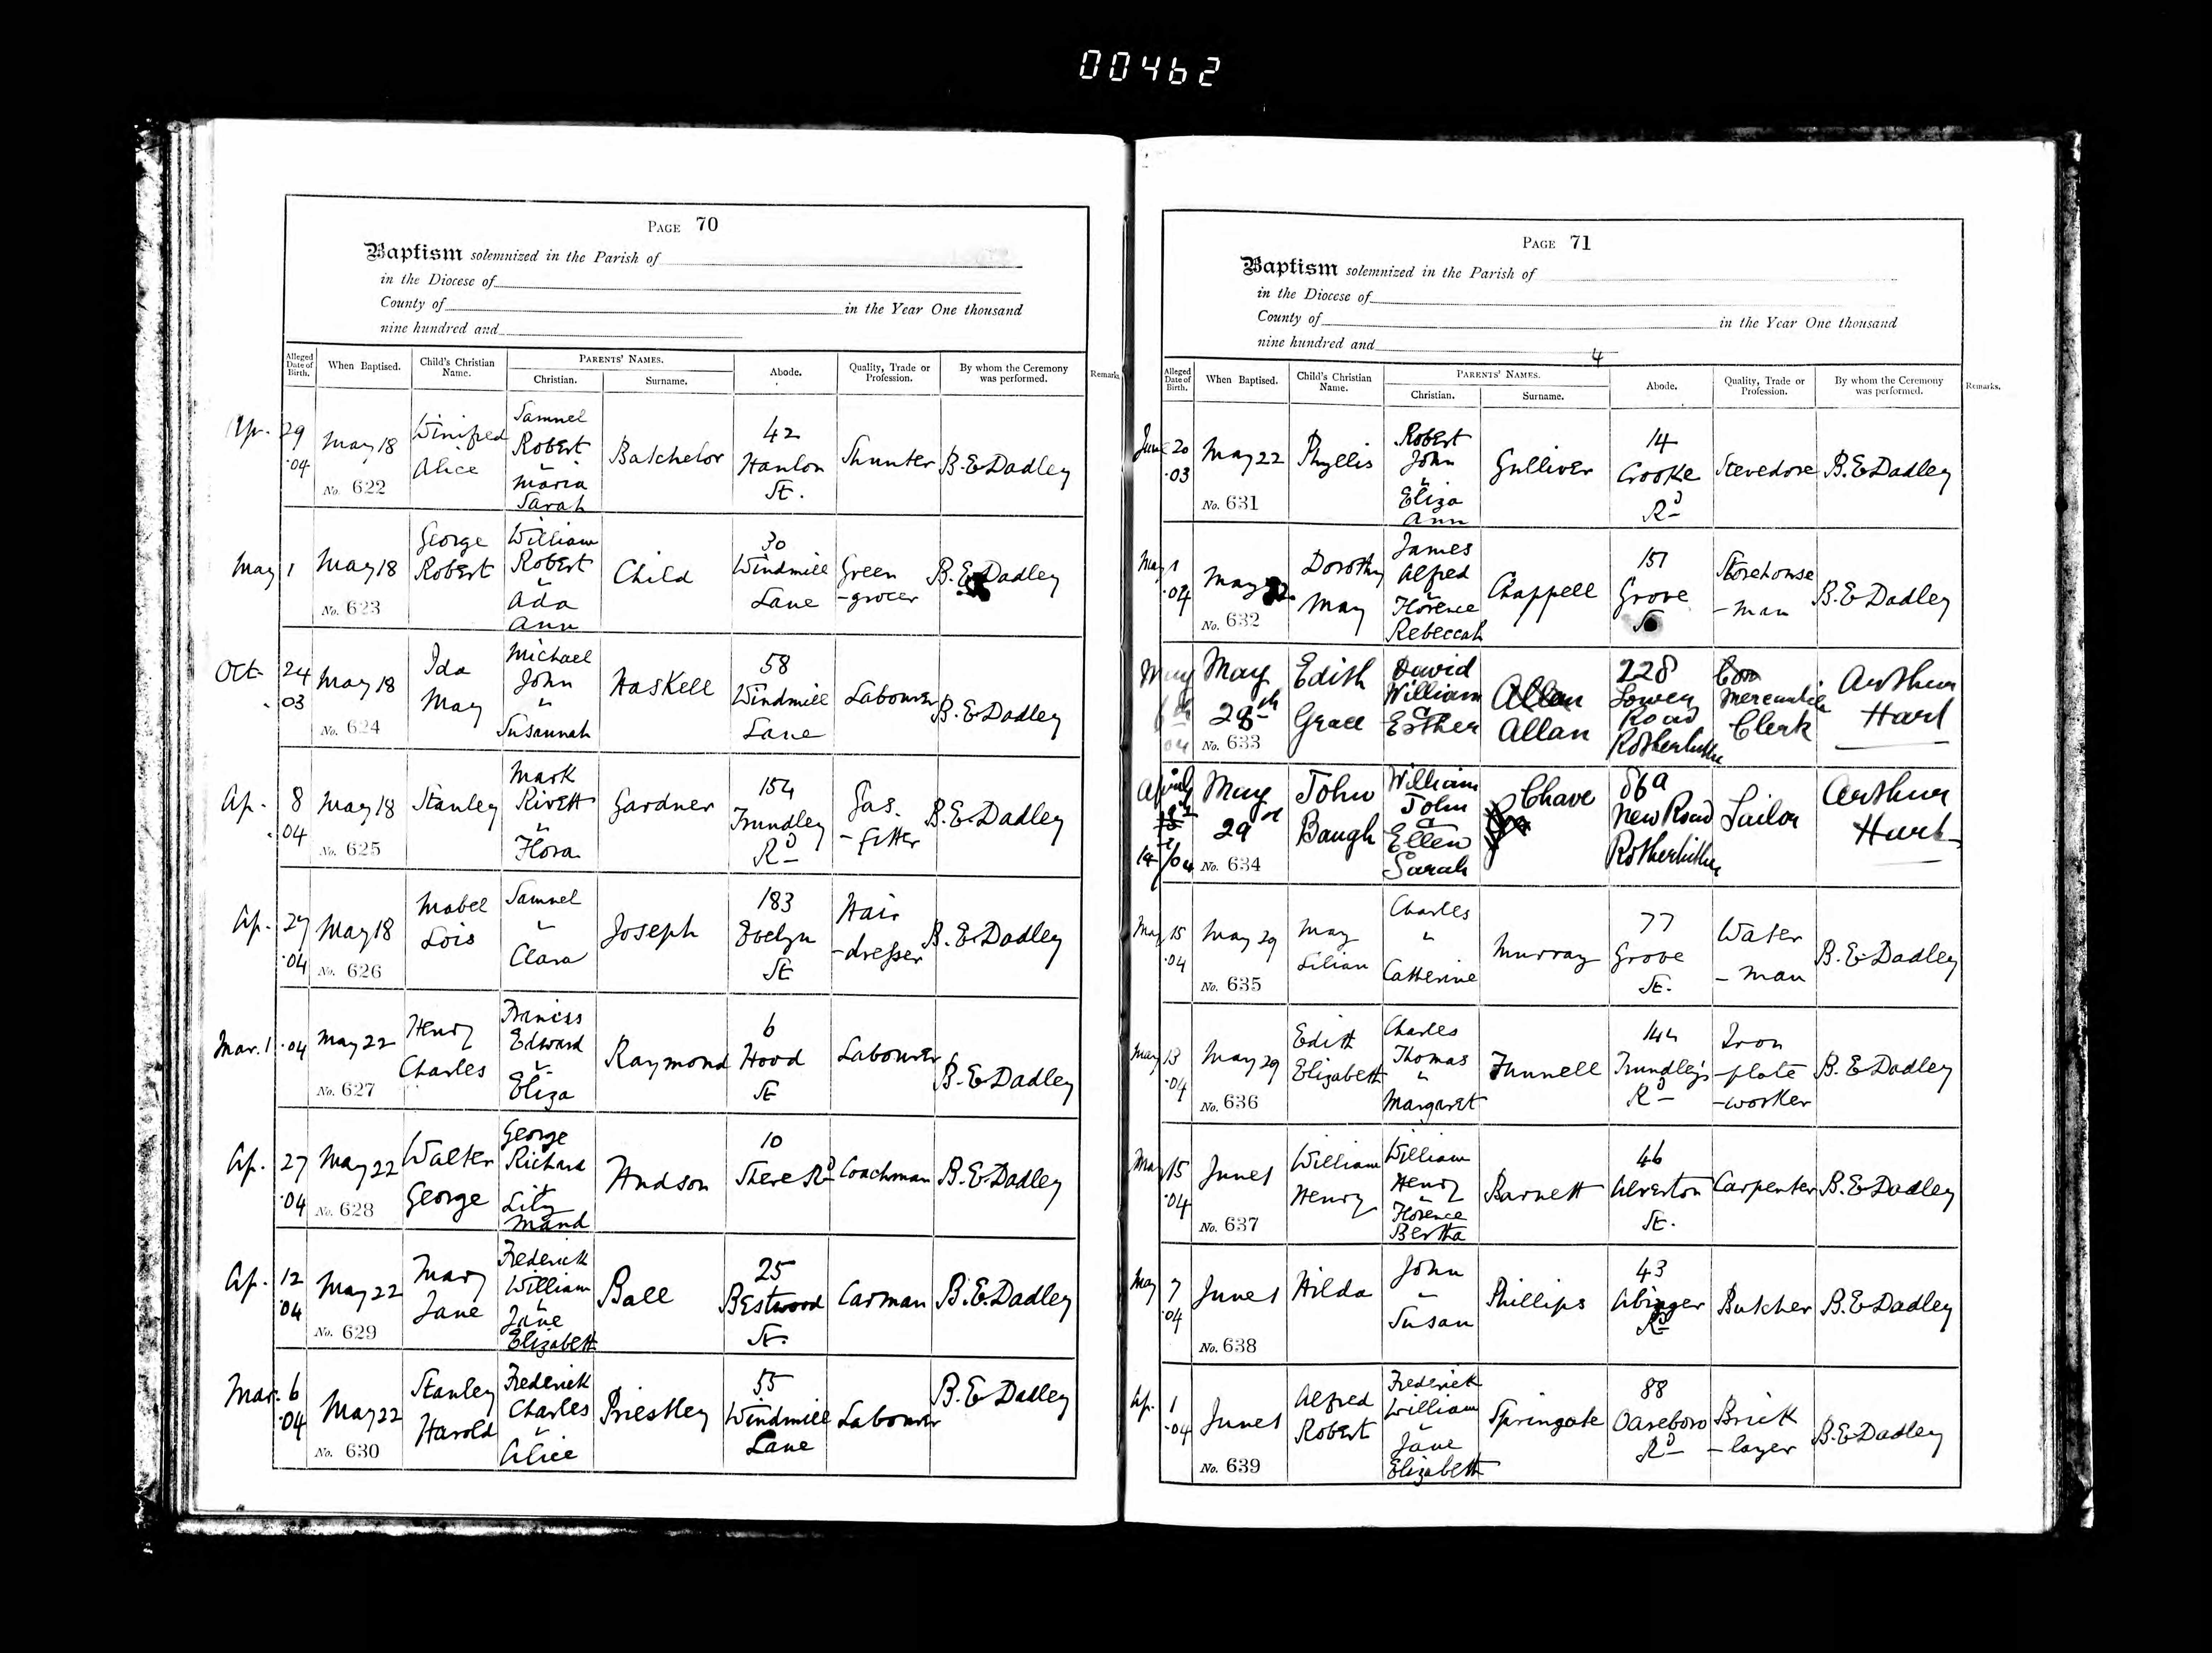 00462
PAGE 70
Baptism solemnized in the Parish of
in the Diocese of
County of in the Year One thousand
nine hundred and
Alleged Date of Birth. When Baptised. Child's Christian Name. PARENTS' NAMES. Christian. Surname. Abode. Quality, Trade or Profession. By whom the Ceremony was performed. Remarks
Apr. 29 04 May 18 No. 622 Winifred Alice Samuel Robert " Maria Sarah Batchelor 42 Hanlon St. Shunter B.E. Dadley
May 1 May 18 No. 623 George Robert William Robert " Ada Ann Child 30 Windmill Lane Green -grocer B.E. Dadley
Oct 24 03 May 18 No. 624 Ida May Michael John " Susannah Haskell 58 Windmill Lane Labourer B.E. Dadley
Ap. 8 04 May 18 No. 625 Stanley Mark Rivett " Flora Gardner 154 Trundley Rd Gas. -fitter B.E. Dadley
Ap. 27 04 May 18 No. 626 Mabel Lois Samuel " Clara Joseph 183 Evelyn St Hair -dresser B.E. Dadley
Mar. 1 04 May 22 No. 627 Henry Charles Francis Edward " Eliza Raymond 6 Hood St Labourer B.E. Dadley
Ap. 27 04 May 22 No. 628 Walter George George Richard Lily Maud Hudson 10 Rd Coachman B.E. Dadley
Ap. 12 04 May 22 No. 629 Mary Jane Frederick William " Jane Elizabeth Ball 25 Bestwood St. Carman B.E. Dadley
Mar. 6 04 May 22 No. 630 Stanley Harold Frederick Charles " Alice Priestley 55 Windmill Lane Labourer B.E. Dadley
PAGE 71
Baptism solemnized in the Parish of
in the Diocese of
County of in the Year One thousand
nine hundred and 4
Alleged Date of Birth. When Baptised. Child's Christian Name. PARENTS' NAMES. Christian. Surname. Abode. Quality, Trade or Profession. By whom the Ceremony was performed. Remarks.
June 20 03 May 22 No. 631 Phyllis Robert John " Eliza Ann Gulliver 14 Crooke Rd Stevedore B.E. Dadley
May 1 04 May 22 No. 632 Dorothy May James Alfred " Florence Rebeccah Chappell 151 Grove St Storehouse -man B.E. Dadley
May 6th 04 May 28th No. 633 Edith Grace David William & Esther Allan Allan 228 Lower Road Rotherhithe Com Mercantile Clerk Arthur Hart
April 04 May 29 No. 634 John Baugh William John & Ellen Sarah Chave 86a New Road Rotherhithe Sailor Arthur Hart
May 15 04 May 29 No. 635 May Lilian Charles " Catherine Murray 77 Grove St. Water -man B.E. Dadley
May 13 04 May 29 No. 636 Edith Elizabeth Charles Thomas " Margaret Funnell 144 Trundley's Rd Iron -plate -worker B.E. Dadley
May 15 04 June 1 No. 637 William Henry William Henry " Florence Bertha Barnett 46 Alverton St. Carpenter B.E. Dadley
May 7 04 June 1 No. 638 Hilda John " Susan Phillips 43 Abinger Rd Butcher B.E. Dadley
Ap. 1 04 June 1 No. 639 Alfred Robert Frederick William " Jane Elizabeth Springate 88 Oareboro Rd Brick -layer B.E. Dadley